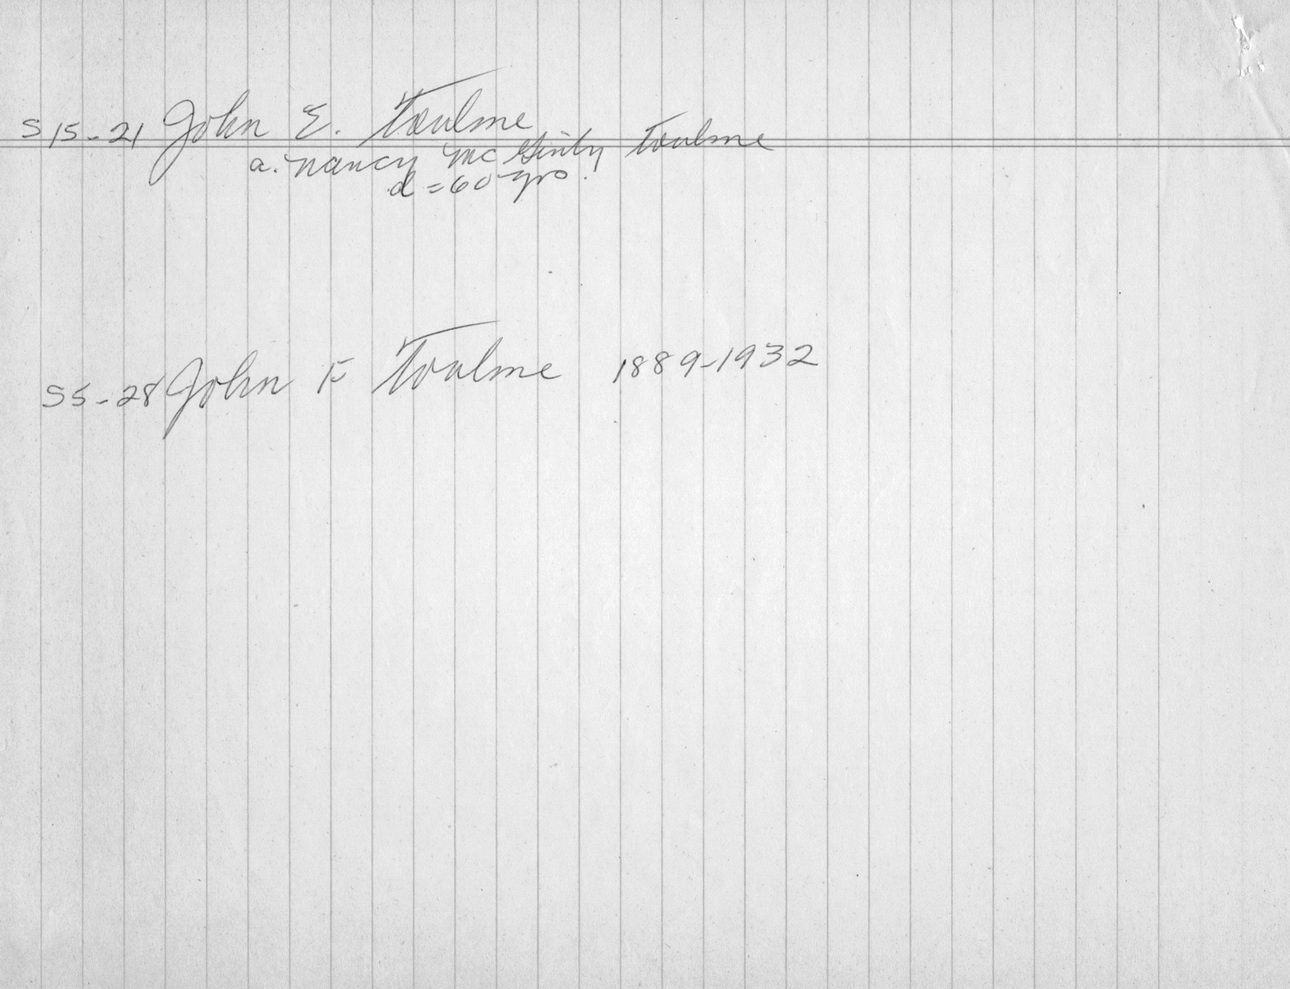 S15-21 John E. Toulme
a. Nancy McGinty Toulme
d = 60 yrs.
S5-28 John F Toulme 1889-1932